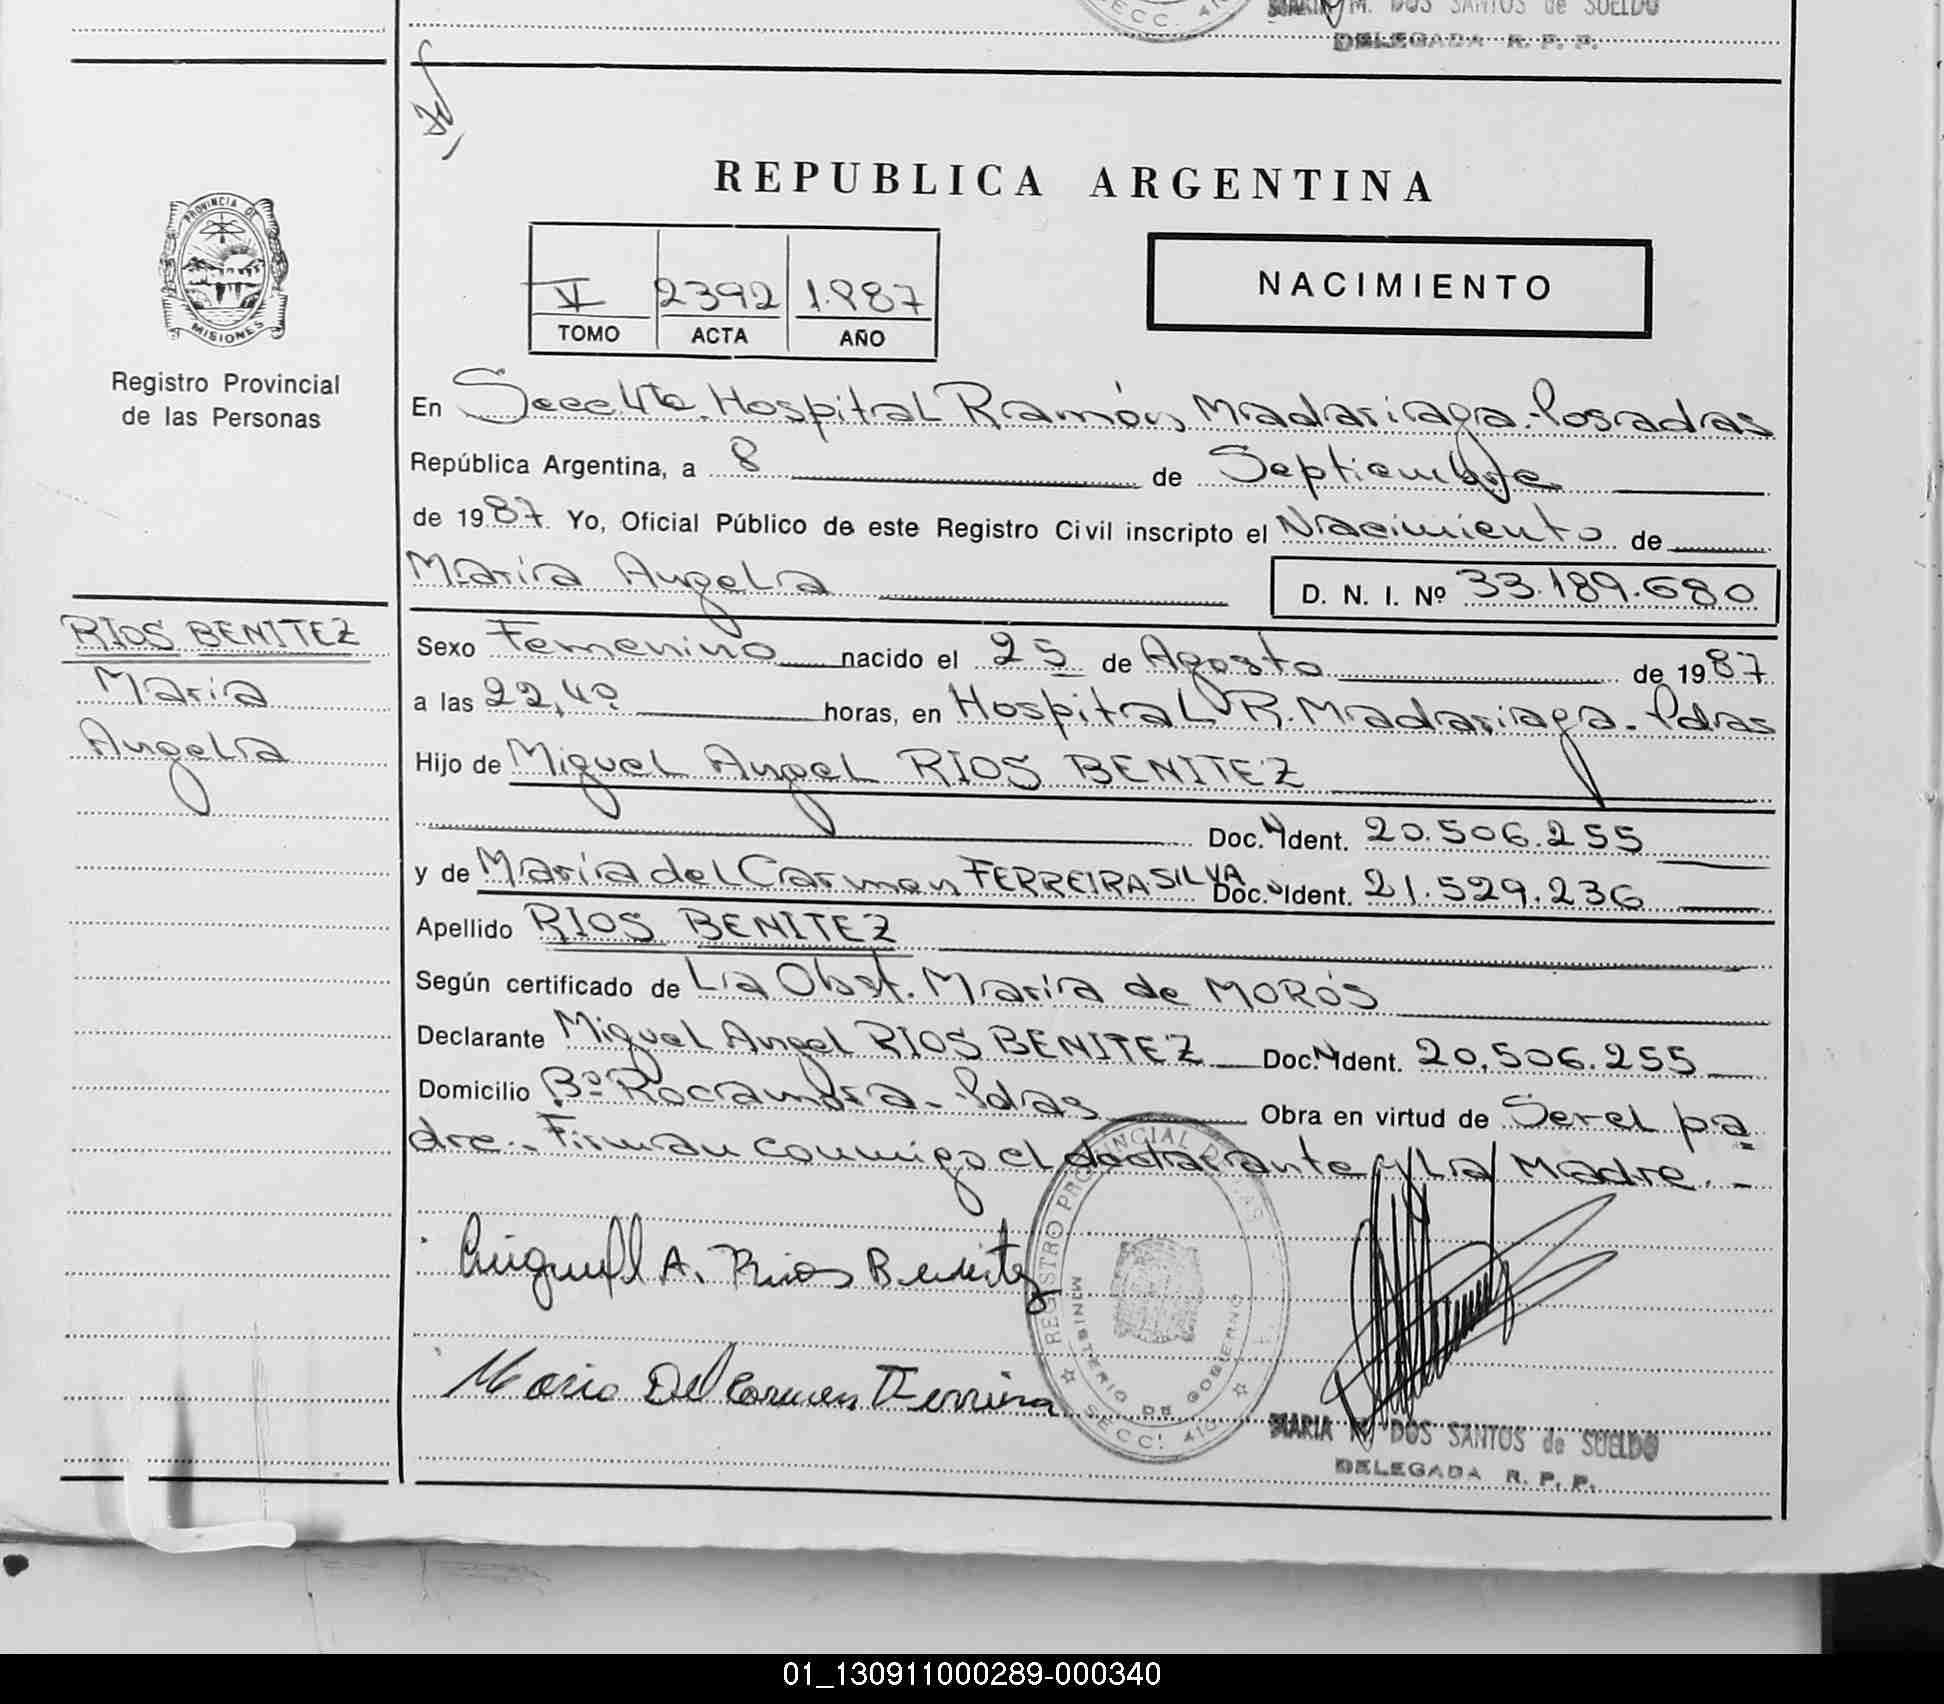 MARIA M. DOS SANTOS de SUELDO
DELEGADA R. P. P.
REPUBLICA ARGENTINA
PROVINCIA DE
MISIONES
Registro Provincial
de las Personas
VI 2392 1.987
TOMO ACTA AÑO
NACIMIENTO
En Secc 4ta. Hospital Ramón Madariaga. Posadas
República Argentina, a 8 de Septiembre
de 1987. Yo, Oficial Público de este Registro Civil inscripto el Nacimiento de
María Angela
D. N. I. Nº 33.189.680
RIOS BENITEZ
María
Angela
Sexo Femenino nacido el 25 de Agosto de 1987
a las 22,40 horas, en Hospital R. Madariaga. Pdas
Hijo de Miguel Angel RIOS BENITEZ
Doc. N Ident. 20.506.255
y de María del Carmen FERREIRA SILVA Doc. N Ident. 21.529.236
Apellido RIOS BENITEZ
Según certificado de La Obst. María de MORÓS
Declarante Miguel Angel RIOS BENITEZ Doc. N Ident. 20.506.255
Domicilio Bº Rocamora. Pdas Obra en virtud de Ser el pa=
dre.. Firman conmigo el declarante y La Madre. -
Miguel A. Rios Benitez
Maria Del Carmen Ferreira
REGISTRO PROVINCIAL DE LAS
MINISTERIO DE GOBIERNO
SECC. 4ta
MARIA M. DOS SANTOS de SUELDO
DELEGADA R. P. P.
01_130911000289-000340